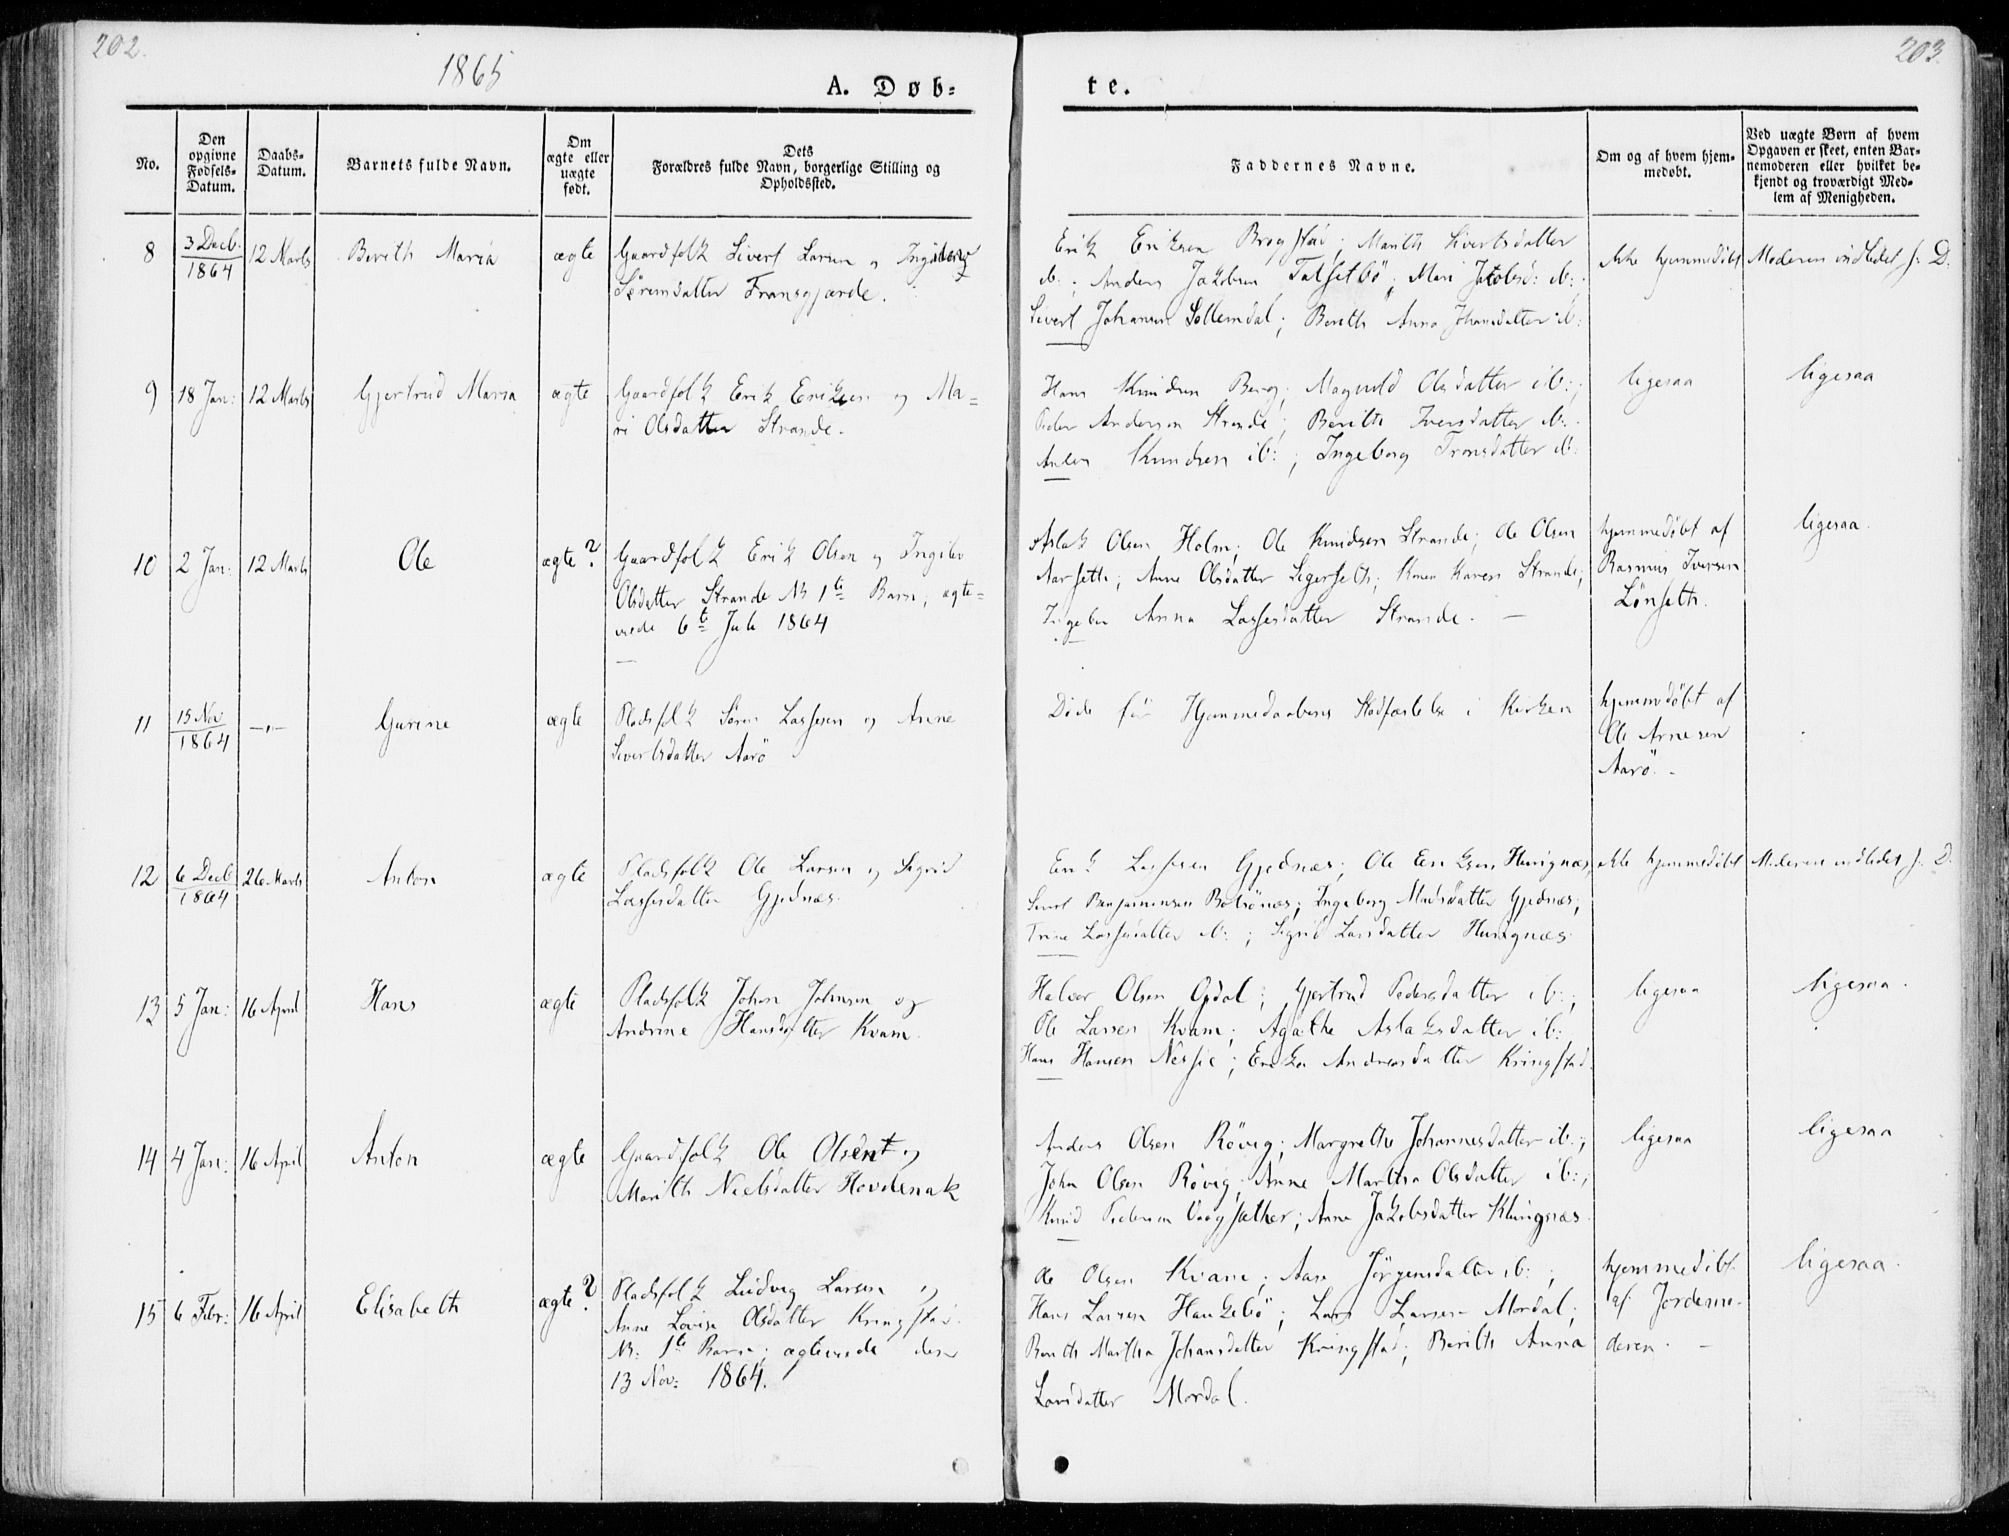 202.
1865
A. Døb-
te.
203.
No.
Den
opgivne
Fødsels-
Datum.
Daabs-
Datum.
Barnets fulde Navn.
Om
ægte eller
uægte
født.
Dets
Forældres fulde Navn, borgerlige Stilling og
Opholdssted.
Faddernes Navne.
Om og af hvem hjem-
medøbt.
Ved uægte Børn af hvem
Opgaven er skeet, enten Bar-
nemoderen eller hvilket be-
kjendt og troværdigt Med-
lem af Menigheden.
8
3 Decb.
1864
12 Marts
Berith Maria
ægte
Gaardfolk Sivert Larsen og
Sørensdatter Fransgjærde.
Erik Eriksen Brogstad; Marith Sivertsdatter
ib:; Anders Jakobsen Talsetbö; Mari Jakobsd: ib:
Sivert Johansen Sollemdal; Berith Anna Johansdatter ib:
ikke hjemmedöbt
Moderen indledet s. D.
9
18 Jan:
12 Marts
Gjertrud Maria
ægte
Gaardfolk Erik Eriksen og Ma=
ri Olsdatter Strande.
Hans Knudsen Berg; Magnild Olsdatter ib:;
Peder Andersen Strande; Berith Iversdatter ib:
Anders Knudsen ib:; Ingeborg Tronsdatter ib:
ligesaa
ligesaa
10
2 Jan:
12 Marts
Ole
ægte?
Gaardfolk Erik Olsen og Ingebor
Olsdatter Strande NB 1te Barn; ægte=
viede 6te Juli 1864
Aslak Olsen Holm; Ole Knudsen Strande; Ole Olsen
Aarseth; Anne Olsdatter Segerseth; Karen Strande;
Anna Lassesdatter Strande. —
hjemmedöbt af
Rasmus Iversen
Lönseth.
ligesaa.
11
15 Nov
1864
—"—
Gurine
ægte
Pladsfolk Sören Lassesen og Anne
Sivertsdatter Aarö
Döde för Hjemmedaabens Stadfæstelse i Kirken
hjemmedöbt af
Ole Arnesen
Aarö. -
12
6 Decb
1864
26 Marts
Anton
ægte
Pladsfolk Ole Larsen og Sigrid
Lassesdatter Gjednæs.
Erik Lassesen Gjednæs; Ole Eriksen Husignæs
Sivert Benjaminsen Bolsönæs; Ingeborg Madsdatter Gjednæs;
Trine Lassesdatter ib:; Sigrid Larsdatter Husignæs
ikke hjemmedöbt
Moderen indledet s. D.
13
5 Jan:
16 April
Hans
ægte
Pladsfolk Johan Johnsen og
Andrine Hansdatter Kvam.
Halvor Olsen Opdal; Gjertrud Pedersdatter ib:;
Ole Larsen Kvam; Agathe Aslaksdatter ib:
Hans Hansen Nesse; Erika Andreasdatter Kringstad.
ligesaa
ligesaa.
14
4 Jan:
16 April
Anton
ægte
Gaardfolk Ole Olsen og
Marith Nielsdatter Hovdenak
Anders Olsen Rövig; Margrethe Johannesdatter ib:;
John Olsen Rövig; Anne Martha Olsdatter ib:;
Knud Pedersen Vaagsæther; Anne Jakobsdatter Klungnæs.
ligesaa
ligesaa
15
6 Febr:
16 April
Elisabeth
ægte?
Pladsfolk Ludvig Larsen og
Anne Lovise Olsdatter Kringstad.
NB: 1te Barn; ægteviede den
13 Nov: 1864.
Ole Olsen Kvam; Aase Jörgensdatter ib:;
Hans Larsen Haukebö; Lars Larsen Mordal;
Berith Martha Johansdatter Kringstad; Berith Anna
Larsdatter Mordal.
hjemmedöbt
af Jordemo-
deren. —
ligesaa.